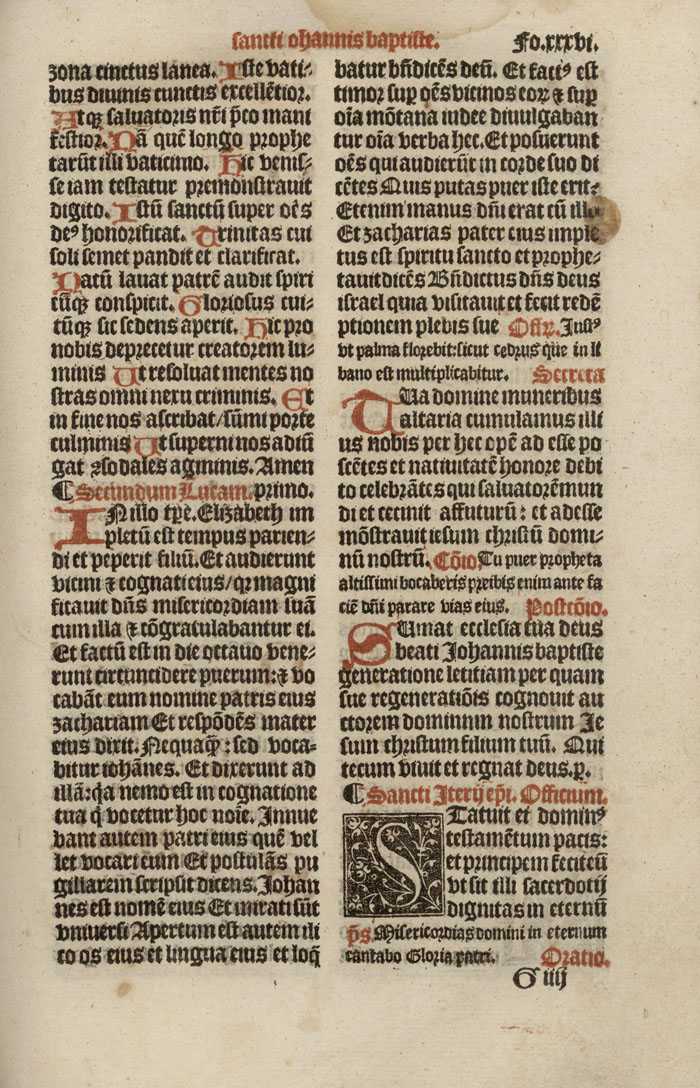 sancti ohannis baptiste.
Fo.xxxvi.
zona cinctus lanea. Iste vati⸗
bus diuinis cunctis excellẽtior.
Atqꝫ saluatoris nr̃i p̃co mani
festior. Nã quẽ longo prophe
tarũt illi vaticinio. Hic venis⸗
se iam testatur premonstrauit
digito. Istũ sanctũ super oẽs
deꝰ honorificat. Trinitas cui
soli semet pandit et clarificat.
Natũ lauat patrẽ audit spiri
tũqꝫ conspicit. Gloriosus cui⸗
tũqꝫ sic sedens aperit. Hic pro
nobis deprecetur creatorem lu⸗
minis Ut resoluat mentes no
stras omni nexu criminis. Et
in fine nos ascribat/sũmi porte
culminis Ut superni nos adiũ
gat ꝛsodales agminis. Amen
¶ Secundum Lucam. primo.
IN illo tp̃e. Elizabeth im
pletũ est tempus parien⸗
di et peperit filiũ. Et audierunt
vicini ⁊ cognati eius/qꝛ magni
ficauit dñs misericordiam suã
cum illa ⁊ cõgratulabantur ei.
Et factũ est in die octauo vene⸗
runt circuncidere puerum:⁊ vo
cabãt eum nomine patris eius
zachariam Et respõdẽs mater
eius dixit. Nequaq̃ꝫ: sed voca⸗
bitur iohãnes. Et dixerunt ad
illã: q̃a nemo est in cognatione
tua q̃ vocetur hoc noĩe. Innue
bant autem patri eius quẽ vel
let vocari eum Et postulãs pu
gillarem scripsit dicens. Johan
nes est nomẽ eius Et mirati sũt
vniuersi Apertum est autem ili
co os eius et lingua eius et loq̃
batur bñdicẽs deũ. Et factꝰ est
timor suꝑ oẽs vicinos eoꝝ ⁊ suꝑ
oĩa mõtana iudee diuulgaban
tur oĩa verba hec. Et posuerunt
oẽs qui audierũt in corde suo di
cẽtes Quis putas puer iste erit⸗
Etenim manus dñi erat cũ illo
Et zacharias pater eius imple
tus est spiritu sancto et prophe⸗
tauit dicẽs Bñdictus dñs deus
israel quia visitauit et fecit redẽ
ptionem plebis sue Offr̃. Justꝰ
vt palma florebit:sicut cedrus que in li
bano est multiplicabitur. Secreta
TUa domine muneribus
altaria cumulamus illi
us nobis per hec opẽ ad esse po
scẽtes et natiuitatẽ honore debi
to celebrãtes qui saluatorẽ mun
di et cecinit affuturũ: et adesse
mõstrauit iesum christũ domi⸗
nũ nostrũ. Cõio Tu puer propheta
altissimi vocaberis preibis enim ante fa
ciẽ dñi parare vias eius. Postcõio.
SUmat ecclesia tua deus
beati Johannis baptiste
generatione letitiam per quam
sue regeneratiõis cognouit au
ctorem dominnm nostrum Je
sum christum filium tuũ. Qui
tecum viuit et regnat deus.p.
¶ Sancti Iterij ep̃i. Officium.
STatuit ei dominꝰ
testamẽtum pacis:
et principem fecit eũ
vt sit illi sacerdotij
dignitas in eternũ
p̃s. Misericordias domini in eternum
cantabo Gloria patri. Oratio.
G iiij